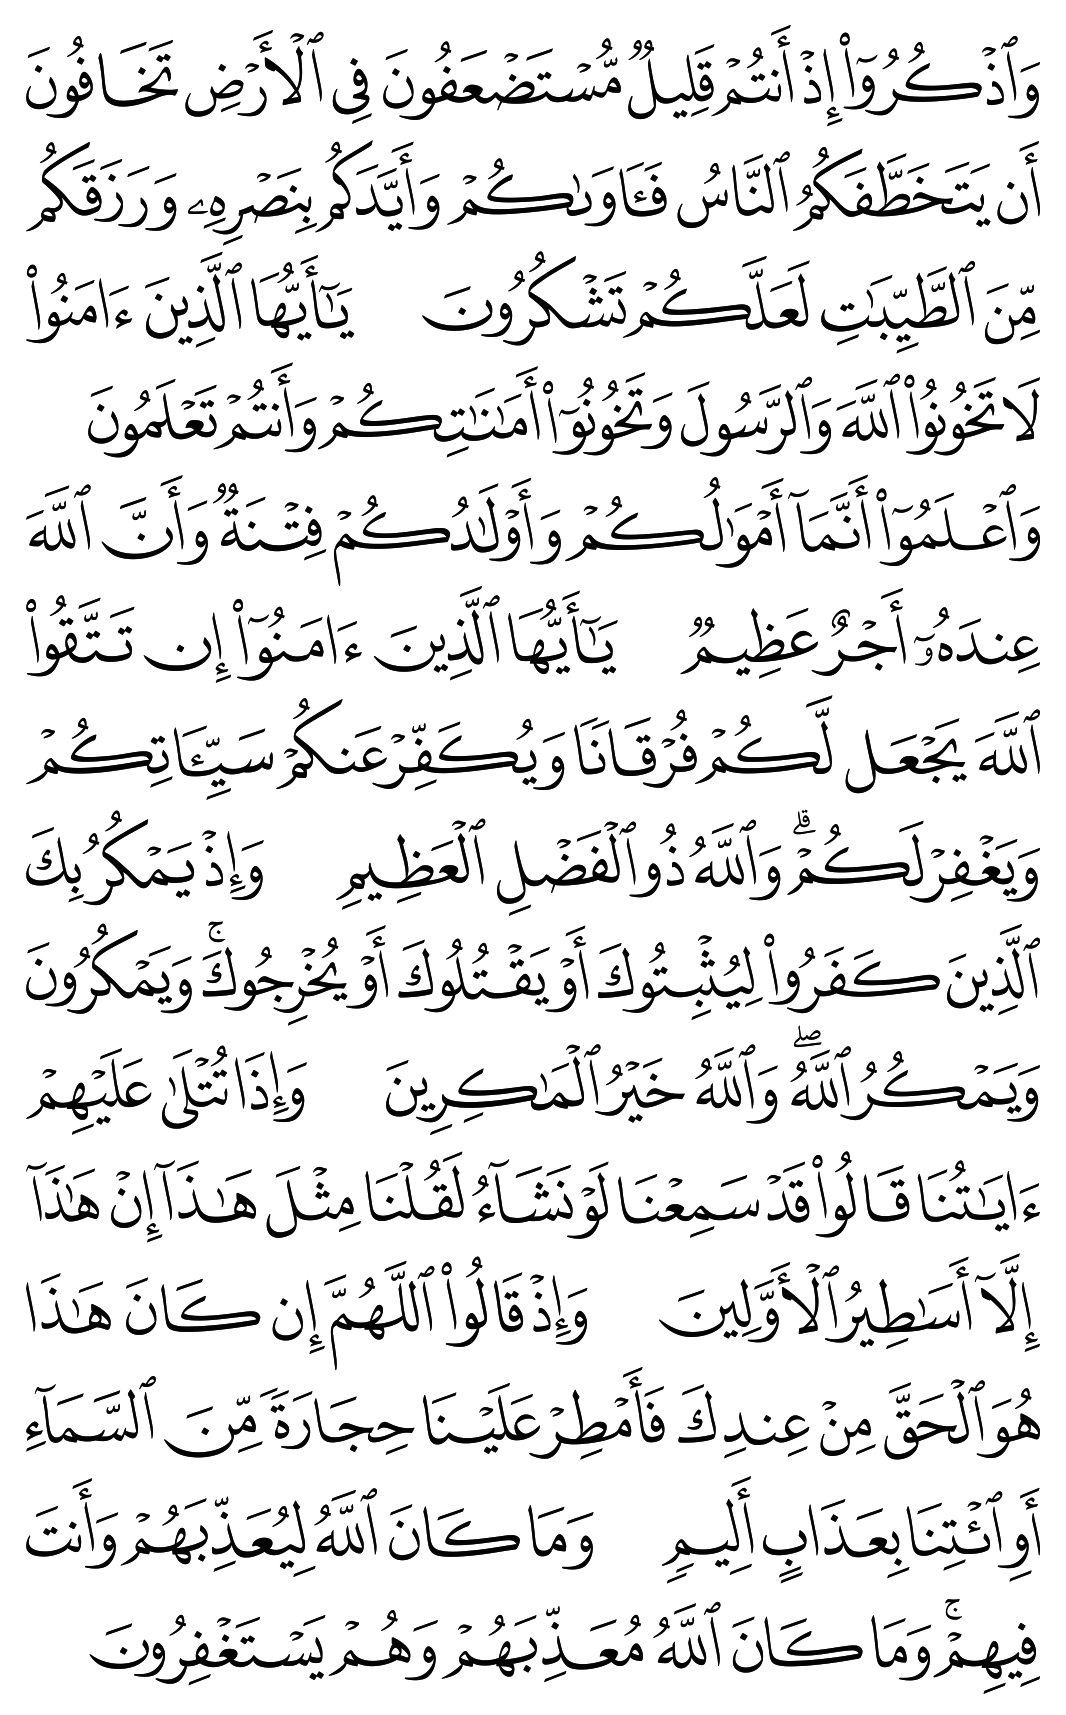 وَٱذۡكُرُوٓاْ إِذۡ أَنتُمۡ قَلِيلٞ مُّسۡتَضۡعَفُونَ فِي ٱلۡأَرۡضِ تَخَافُونَ
أَن يَتَخَطَّفَكُمُ ٱلنَّاسُ فَـَٔاوَىٰكُمۡ وَأَيَّدَكُم بِنَصۡرِهِۦ وَرَزَقَكُم
مِّنَ ٱلطَّيِّبَٰتِ لَعَلَّكُمۡ تَشۡكُرُونَ يَٰٓأَيُّهَا ٱلَّذِينَ ءَامَنُواْ
لَا تَخُونُواْ ٱللَّهَ وَٱلرَّسُولَ وَتَخُونُوٓاْ أَمَٰنَٰتِكُمۡ وَأَنتُمۡ تَعۡلَمُونَ
وَٱعۡلَمُوٓاْ أَنَّمَآ أَمۡوَٰلُكُمۡ وَأَوۡلَٰدُكُمۡ فِتۡنَةٞ وَأَنَّ ٱللَّهَ
عِندَهُۥٓ أَجۡرٌ عَظِيمٞ يَٰٓأَيُّهَا ٱلَّذِينَ ءَامَنُوٓاْ إِن تَتَّقُواْ
ٱللَّهَ يَجۡعَل لَّكُمۡ فُرۡقَانٗا وَيُكَفِّرۡ عَنكُمۡ سَيِّـَٔاتِكُمۡ
وَيَغۡفِرۡ لَكُمۡۗ وَٱللَّهُ ذُو ٱلۡفَضۡلِ ٱلۡعَظِيمِ وَإِذۡ يَمۡكُرُ بِكَ
ٱلَّذِينَ كَفَرُواْ لِيُثۡبِتُوكَ أَوۡ يَقۡتُلُوكَ أَوۡ يُخۡرِجُوكَۚ وَيَمۡكُرُونَ
وَيَمۡكُرُ ٱللَّهُۖ وَٱللَّهُ خَيۡرُ ٱلۡمَٰكِرِينَ وَإِذَا تُتۡلَىٰ عَلَيۡهِمۡ
ءَايَٰتُنَا قَالُواْ قَدۡ سَمِعۡنَا لَوۡ نَشَآءُ لَقُلۡنَا مِثۡلَ هَٰذَآ إِنۡ هَٰذَآ
إِلَّآ أَسَٰطِيرُ ٱلۡأَوَّلِينَ وَإِذۡ قَالُواْ ٱللَّهُمَّ إِن كَانَ هَٰذَا
هُوَ ٱلۡحَقَّ مِنۡ عِندِكَ فَأَمۡطِرۡ عَلَيۡنَا حِجَارَةٗ مِّنَ ٱلسَّمَآءِ
أَوِ ٱئۡتِنَا بِعَذَابٍ أَلِيمٖ وَمَا كَانَ ٱللَّهُ لِيُعَذِّبَهُمۡ وَأَنتَ
فِيهِمۡۚ وَمَا كَانَ ٱللَّهُ مُعَذِّبَهُمۡ وَهُمۡ يَسۡتَغۡفِرُونَ